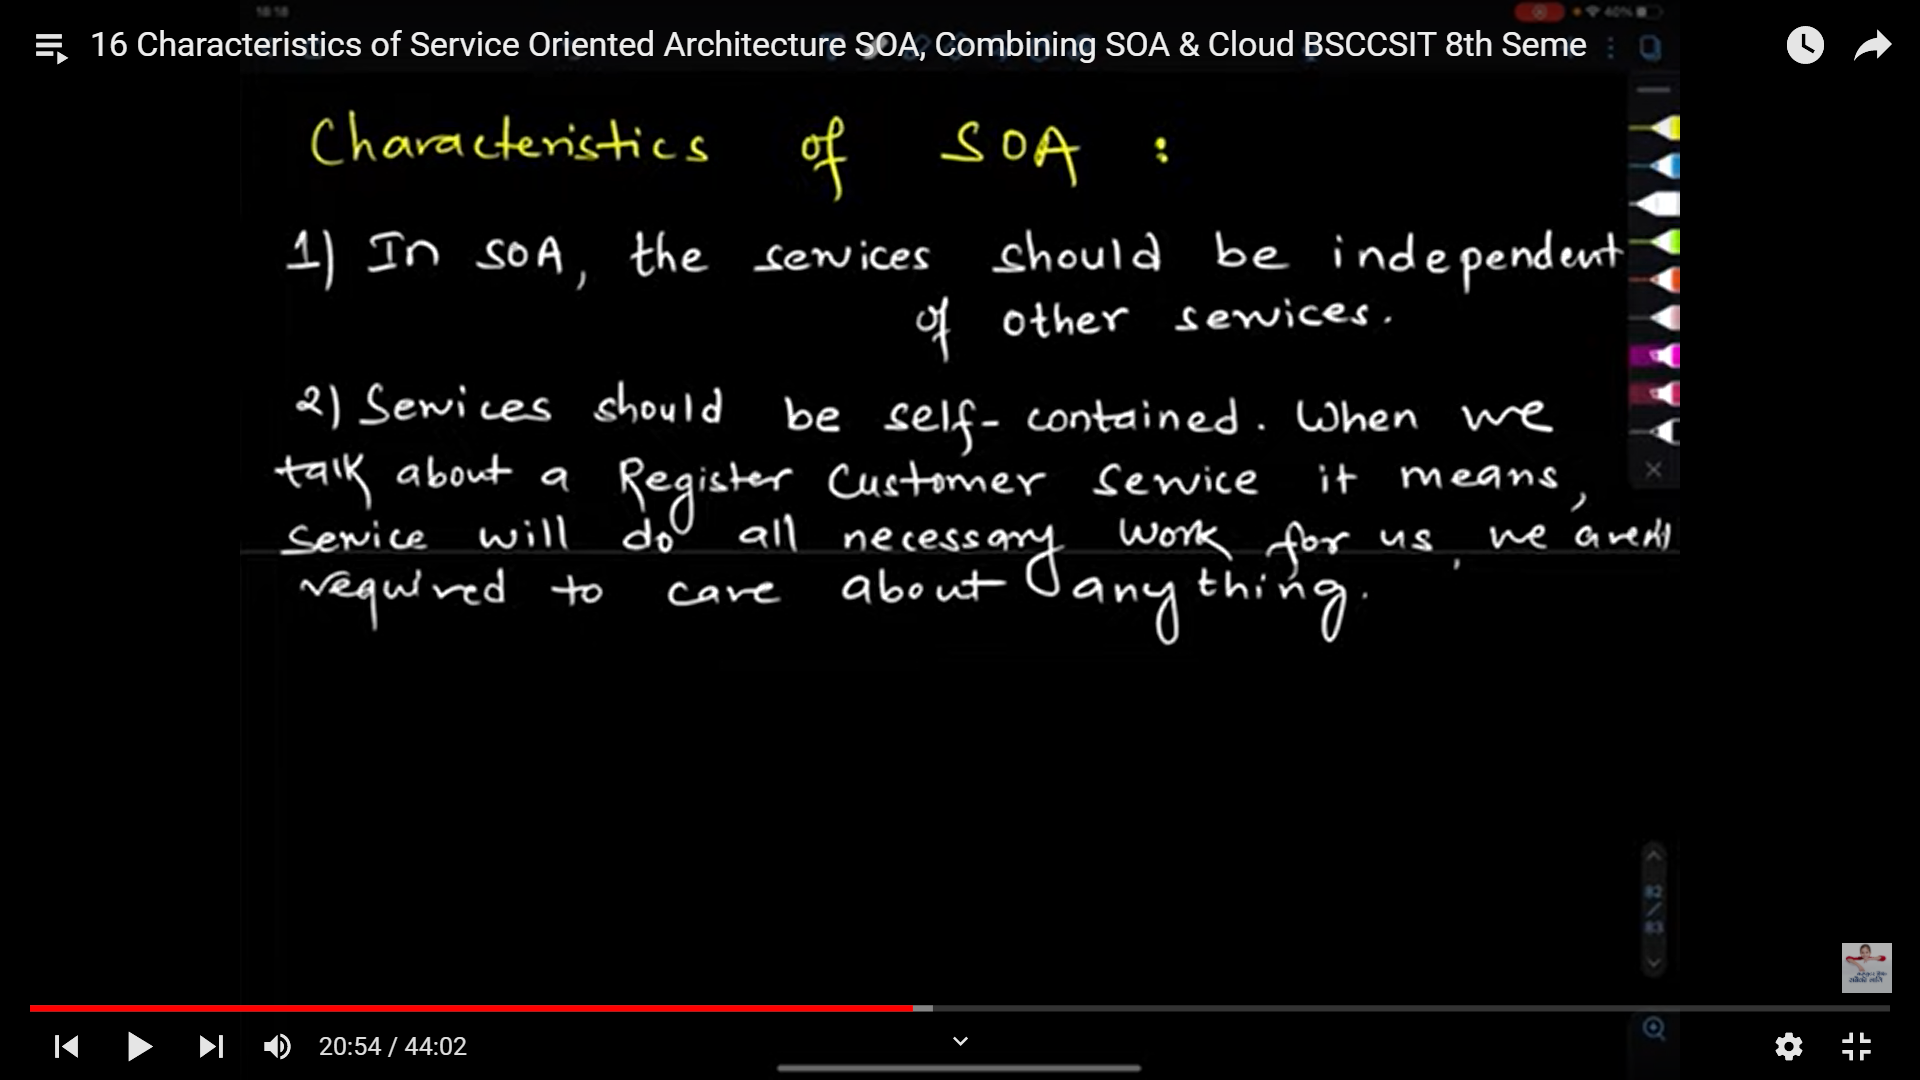 18:18
40%
16 Characteristics of Service Oriented Architecture SOA, Combining SOA & Cloud BSCCSIT 8th Seme
Characteristics of SOA :
1) In SOA, the services should be independent
of other services.
2) Services should be self-contained. When we
talk about a Register Customer Service it means,
service will do all necessary work for us, we aren't
required to care about anything.
82
/
83
20:54 / 44:02